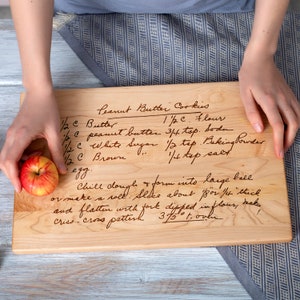 Peanut Butter Cookies
1/2 C Butter 1 1/2 C Flour
1/2 C peanut butter 3/4 tsp Soda
1/2 C White Sugar 1/2 tsp Baking Powder
1/2 C Brown " 1/4 tsp salt
egg
Chill dough & form into large ball
or make a roll Slice about 1/4 thick
and flatten with fork dipped in flour, make
criss-cross pattern 375° oven